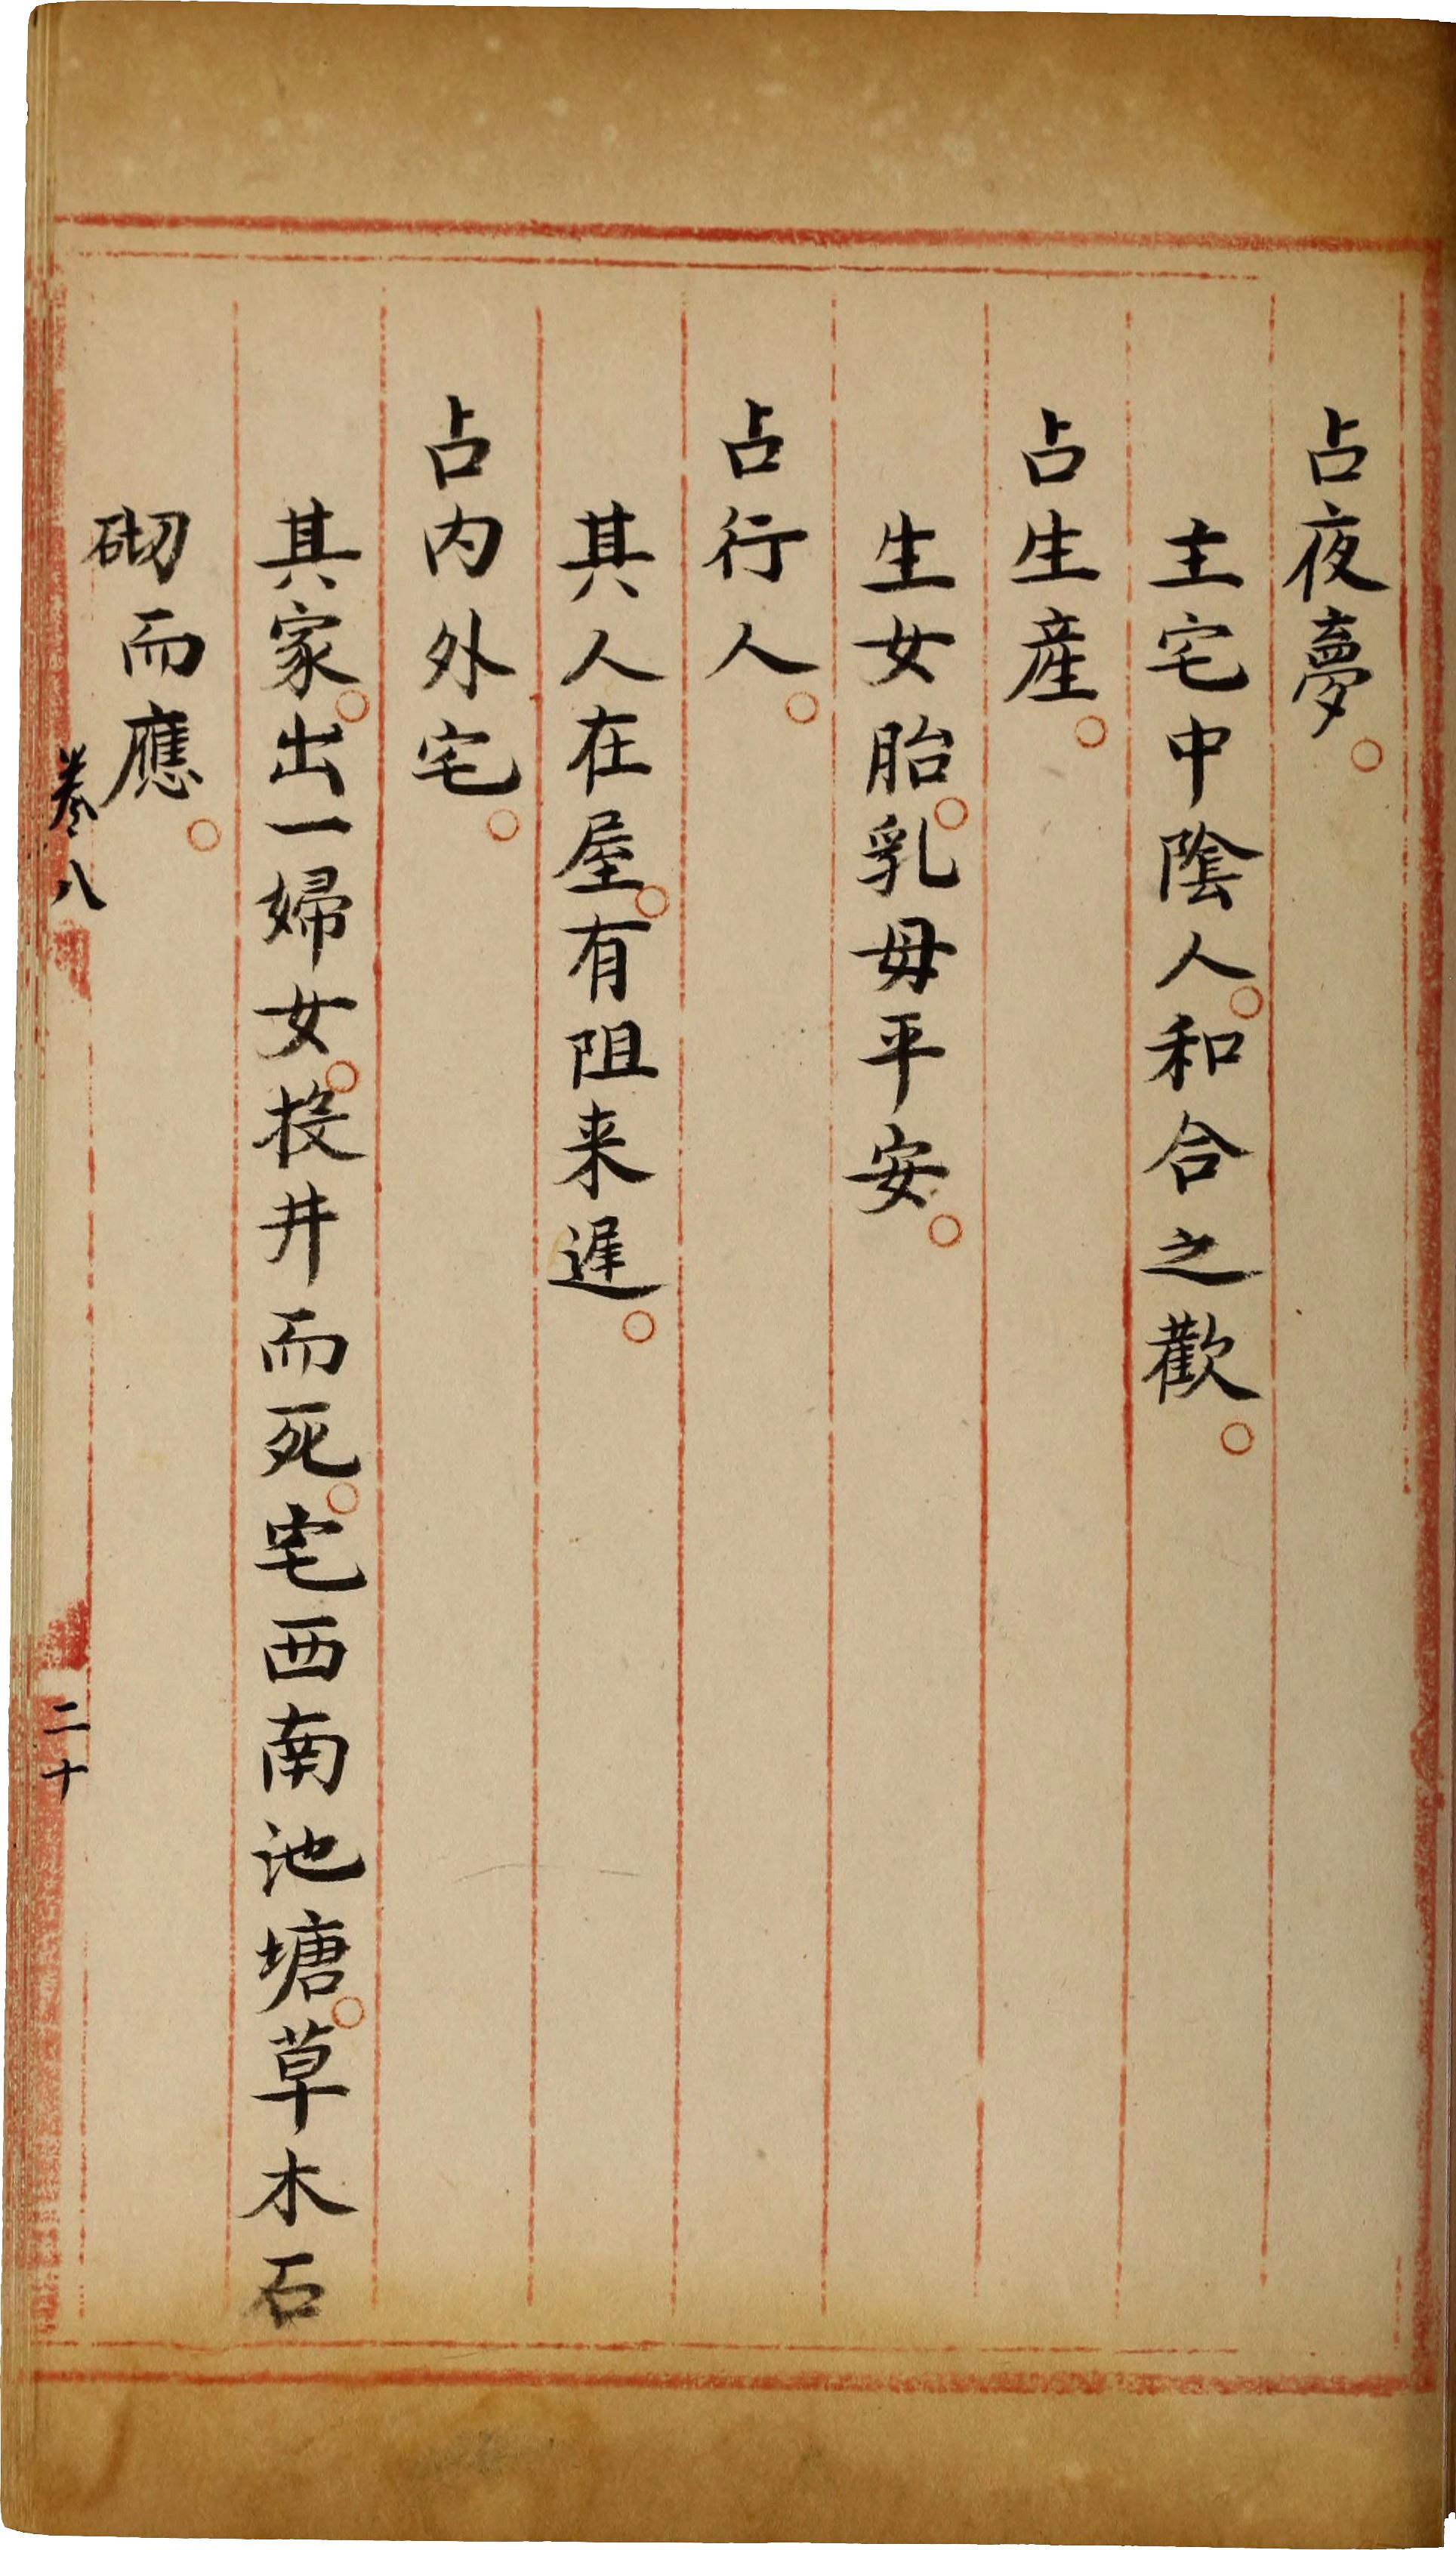 占夜夢。
主宅中陰人。和合之歡。
占生產。
生女胎。乳母平安。
占行人。
其人在屋。有阻来遲。
占内外宅。
其家。出一婦女。投井而死。宅西南池塘。草木石
砌而應。
卷八
二十